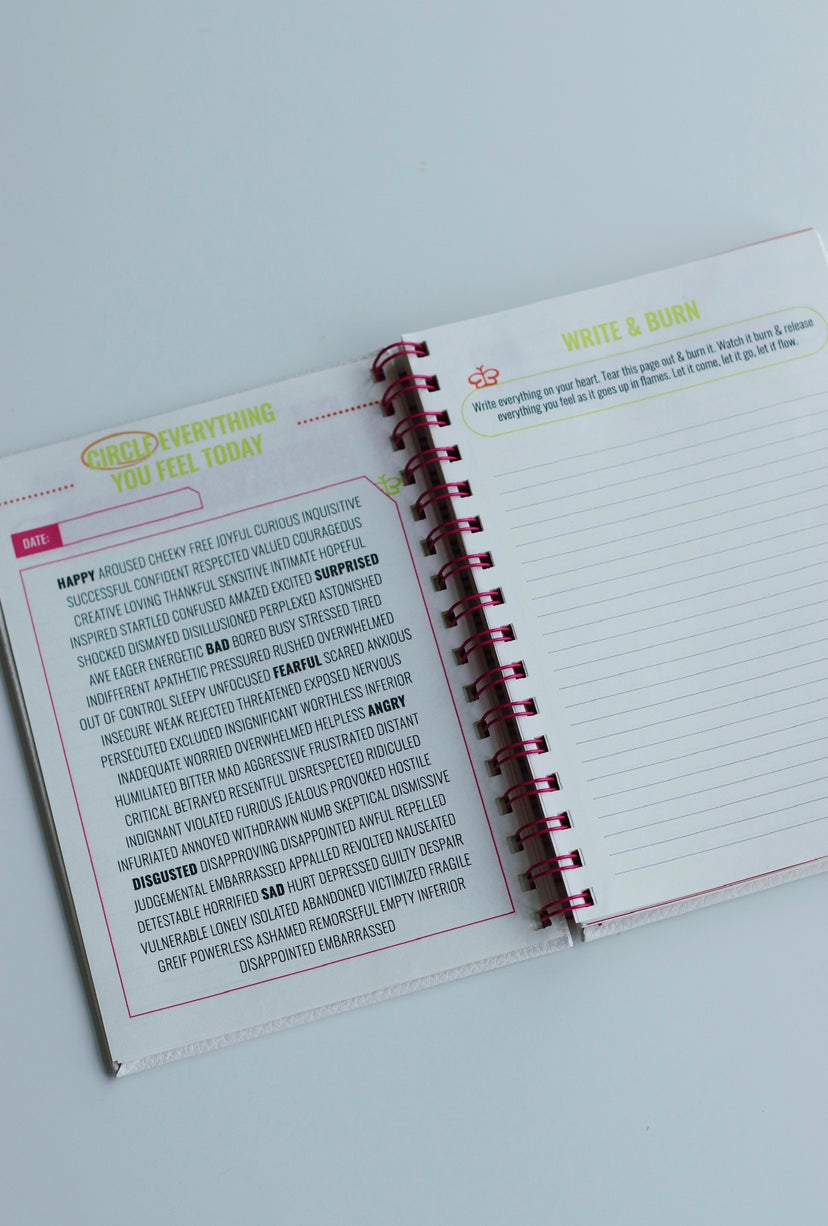 CIRCLE EVERYTHING
YOU FEEL TODAY
DATE:
HAPPY AROUSED CHEEKY FREE JOYFUL CURIOUS INQUISITIVE
SUCCESSFUL CONFIDENT RESPECTED VALUED COURAGEOUS
CREATIVE LOVING THANKFUL SENSITIVE INTIMATE HOPEFUL
INSPIRED STARTLED CONFUSED AMAZED EXCITED SURPRISED
SHOCKED DISMAYED DISILLUSIONED PERPLEXED ASTONISHED
AWE EAGER ENERGETIC BAD BORED BUSY STRESSED TIRED
INDIFFERENT APATHETIC PRESSURED RUSHED OVERWHELMED
OUT OF CONTROL SLEEPY UNFOCUSED FEARFUL SCARED ANXIOUS
INSECURE WEAK REJECTED THREATENED EXPOSED NERVOUS
PERSECUTED EXCLUDED INSIGNIFICANT WORTHLESS INFERIOR
INADEQUATE WORRIED OVERWHELMED HELPLESS ANGRY
HUMILIATED BITTER MAD AGGRESSIVE FRUSTRATED DISTANT
CRITICAL BETRAYED RESENTFUL DISRESPECTED RIDICULED
INDIGNANT VIOLATED FURIOUS JEALOUS PROVOKED HOSTILE
INFURIATED ANNOYED WITHDRAWN NUMB SKEPTICAL DISMISSIVE
DISGUSTED DISAPPROVING DISAPPOINTED AWFUL REPELLED
JUDGEMENTAL EMBARRASSED APPALLED REVOLTED NAUSEATED
DETESTABLE HORRIFIED SAD HURT DEPRESSED GUILTY DESPAIR
VULNERABLE LONELY ISOLATED ABANDONED VICTIMIZED FRAGILE
GREIF POWERLESS ASHAMED REMORSEFUL EMPTY INFERIOR
DISAPPOINTED EMBARRASSED
WRITE & BURN
Write everything on your heart. Tear this page out & burn it. Watch it burn & release
everything you feel as it goes up in flames. Let it come, let it go, let if flow.